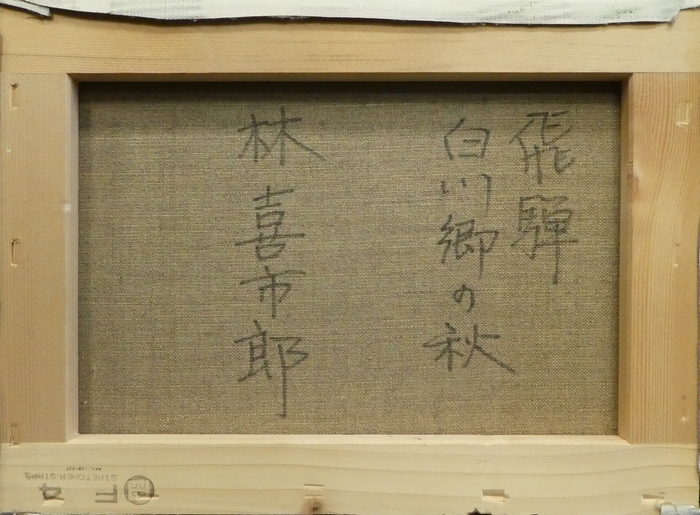 飛騨
白川郷の秋
林喜市郎
F4
STRETCHER STRIPS